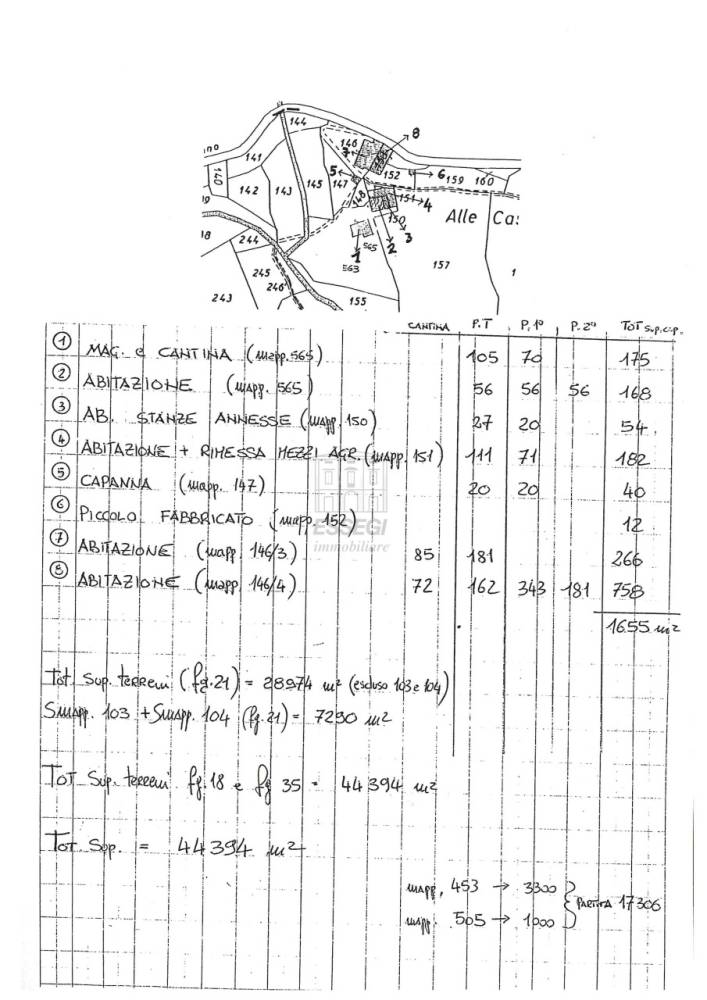 144
8
146
7
141
140
5
152
6
159
160
142
143
145
147
148
151
4
Alle Ca:
150
3
18
244
565
2
1
563
157
245
246
243
155
CANTINA P.T P. 1° P. 2° TOT Sup. cop.
① MAG. e CANTINA (mapp. 565) 105 70 175
② ABITAZIONE (mapp. 565) 56 56 56 168
③ AB. STANZE ANNESSE (mapp. 150) 27 20 54
④ ABITAZIONE + RIMESSA MEZZI AGR. (mapp. 151) 111 71 182
⑤ CAPANNA (mapp. 147) 20 20 40
⑥ PICCOLO FABBRICATO (mapp. 152) 12
ESSEGI
immobiliare
⑦ ABITAZIONE (mapp. 146/3) 85 181 266
⑧ ABITAZIONE (mapp. 146/4) 72 162 343 181 758
1655 m²
Tot. Sup. terreni (fg. 21) = 28974 m² (escluso 103 e 104)
Smapp. 103 + Smapp. 104 (fg. 21) = 7290 m²
TOT Sup. terreni fg. 18 e fg 35 = 44394 m²
Tot. Sup. = 44394 m²
mapp. 453 → 3300
PARTITA 17306
mapp. 505 → 1000